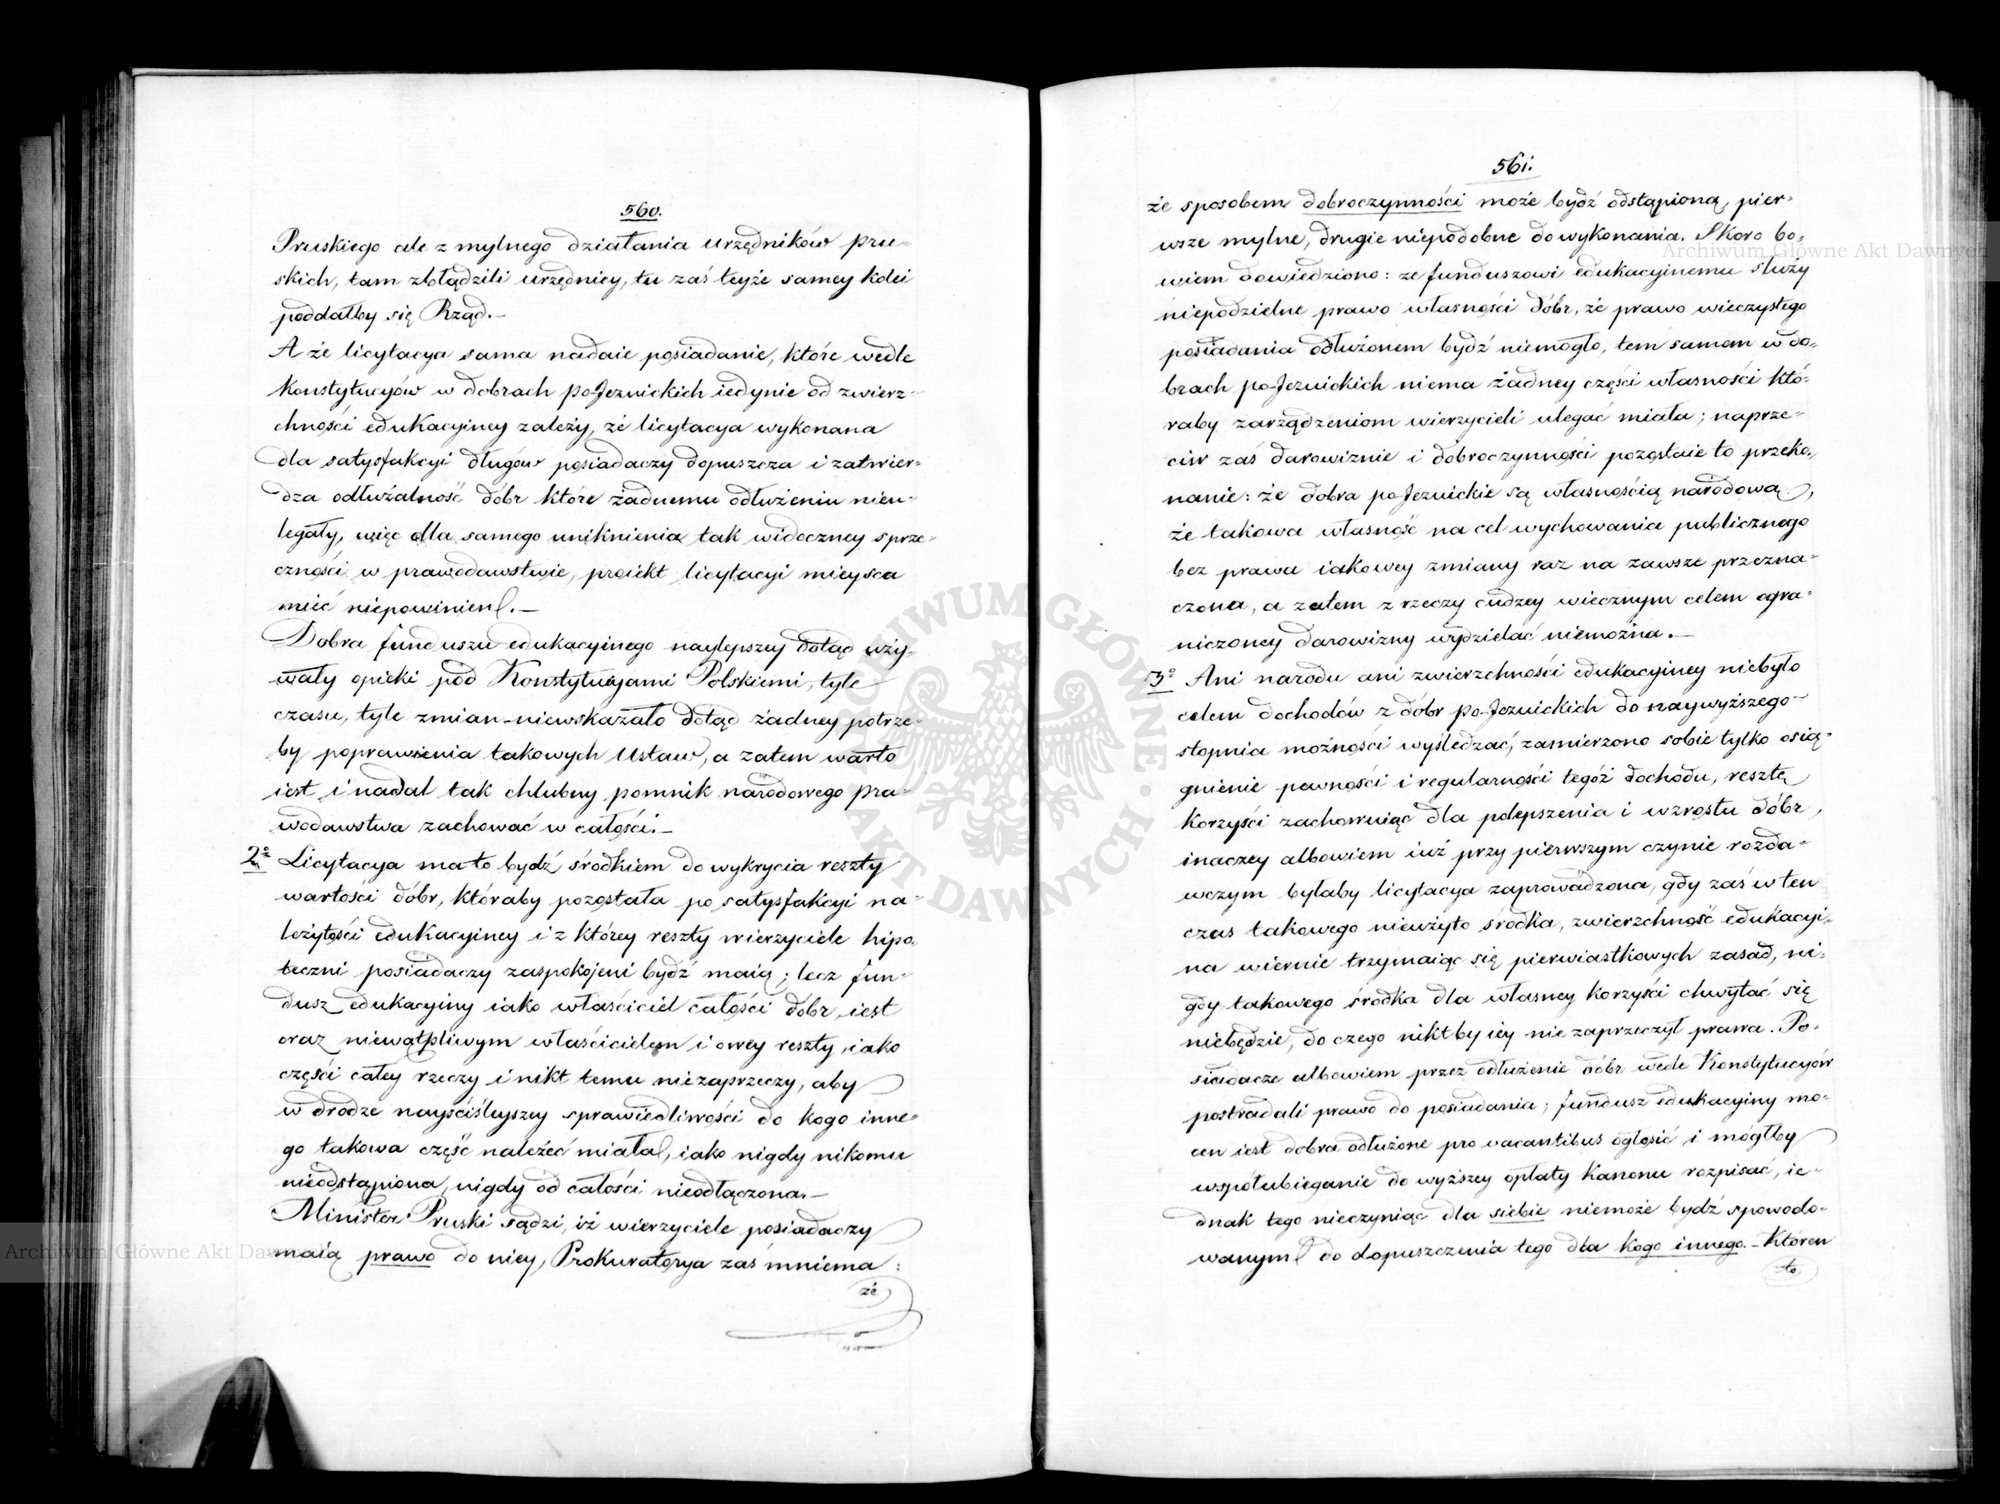 560.
Pruskiego ale z mylnego działania urzędników pru-
skich, tam zbłądzili urzędnicy, tu zaś teyże samey kolei
poddałby się Rząd.–
A że licytacya sama nadaie posiadanie, które wedle
Konstytucyów w dobrach po-Jezuickich iedynie od zwierz-
chności edukacyiney zależy, że licytacya wykonana
dla satysfakcyi długów posiadaczy dopuszcza i zatwier-
dza odłużalność dóbr które żadnemu odłużeniu nieu-
legały, więc dla samego uniknienia tak widoczney sprze-
czności w prawodawstwie, proiekt licytacyi mieysca
mieć niepowinien.–
Dobra funduszu edukacyinego naylepszey dotąd uży-
wały opieki pod Konstytucyami Polskiemi, tyle
czasu, tyle zmian niewskazało dotąd żadney potrze-
by poprawienia takowych Ustaw, a zatem warto
iest i nadal tak chlubny pomnik narodowego pra-
wodawstwa zachować w całości.–
2° Licytacya ma to bydź środkiem do wykrycia reszty
wartości dóbr, któraby pozostała po satysfakcyi na-
leżytości edukacyiney i z którey reszty wierzyciele hipo-
teczni posiadaczy zaspokojeni bydź maią; lecz fun-
dusz edukacyiny iako właściciel całości dóbr, iest
oraz niewątpliwym właścicielem i owey reszty, iako
części całey rzeczy i nikt temu niezaprzeczy, aby
w drodze nayściśleyszey sprawiedliwości do kogo inne-
go takowa część należeć miała, iako nigdy nikomu
nieodstąpiona, nigdy od całości nieodłączona.–
Minister Pruski sądzi, iż wierzyciele posiadaczy
maią prawo do niey, Prokuratorya zaś mniema:
że
561.
że sposobem dobroczynności może bydź odstąpioną, pier-
wsze mylne, drugie niepodobne do wykonania. Skoro bo-
wiem dowiedziono: ze funduszowi edukacyinemu służy
niepodzielne prawo własności dóbr, że prawo wieczystego
posiadania odłużonem bydź niemogło, tem samem w do-
brach po-Jezuickich niema żadney części własności któ-
raby zarządzeniom wierzycieli ulegać miała; naprze-
ciw zaś darowiznie i dobroczynności pozostaie to przeko-
nanie: że dobra po-Jezuickie są własnością narodową,
że takowa własność na cel wychowania publicznego
bez prawa iakowey zmiany raz na zawsze przezna-
czona, a zatem z rzeczy cudzey wiecznym celem ogra-
niczoney darowizny wydzielać niemożna.–
3° Ani narodu ani zwierzchności edukacyiney niebyło
celem dochodów z dóbr po-Jezuickich do naywyższego
stopnia możności wyśledzać, zamierzono sobie tylko osią-
gnienie pewności i regularności tegoż dochodu, resztę
korzyści zachowuiąc dla polepszenia i wzrostu dóbr,
inaczey albowiem iuż przy pierwszym czynie rozda-
wczym byłaby licytacya zaprowadzona, gdy zaś w ten
czas takowego nieużyto środka, zwierzchność edukacyi-
na wiernie trzymaiąc się pierwiastkowych zasad, ni-
gdy takowego środka dla własney korzyści chwytać się
niebędzie, do czego niktby iey nie zaprzeczył prawa. Po-
siadacze albowiem przez odłużenie dóbr wedle Konstytucyów
postradali prawo do posiadania; fundusz edukacyiny mo-
cen iest dobra odłużone pro vacantibus ogłosić i mógłby
współubieganie do wyższey opłaty kanonu rozpisać, ie-
dnak tego nieczyniąc dla siebie niemoże bydź spowodo-
wanym do dopuszczenia tego dla kogo innego.– Któren
to
Archiwum Główne Akt Dawnych
Archiwum Główne Akt Dawnych
ARCHIWUM GŁÓWNE AKT DAWNYCH